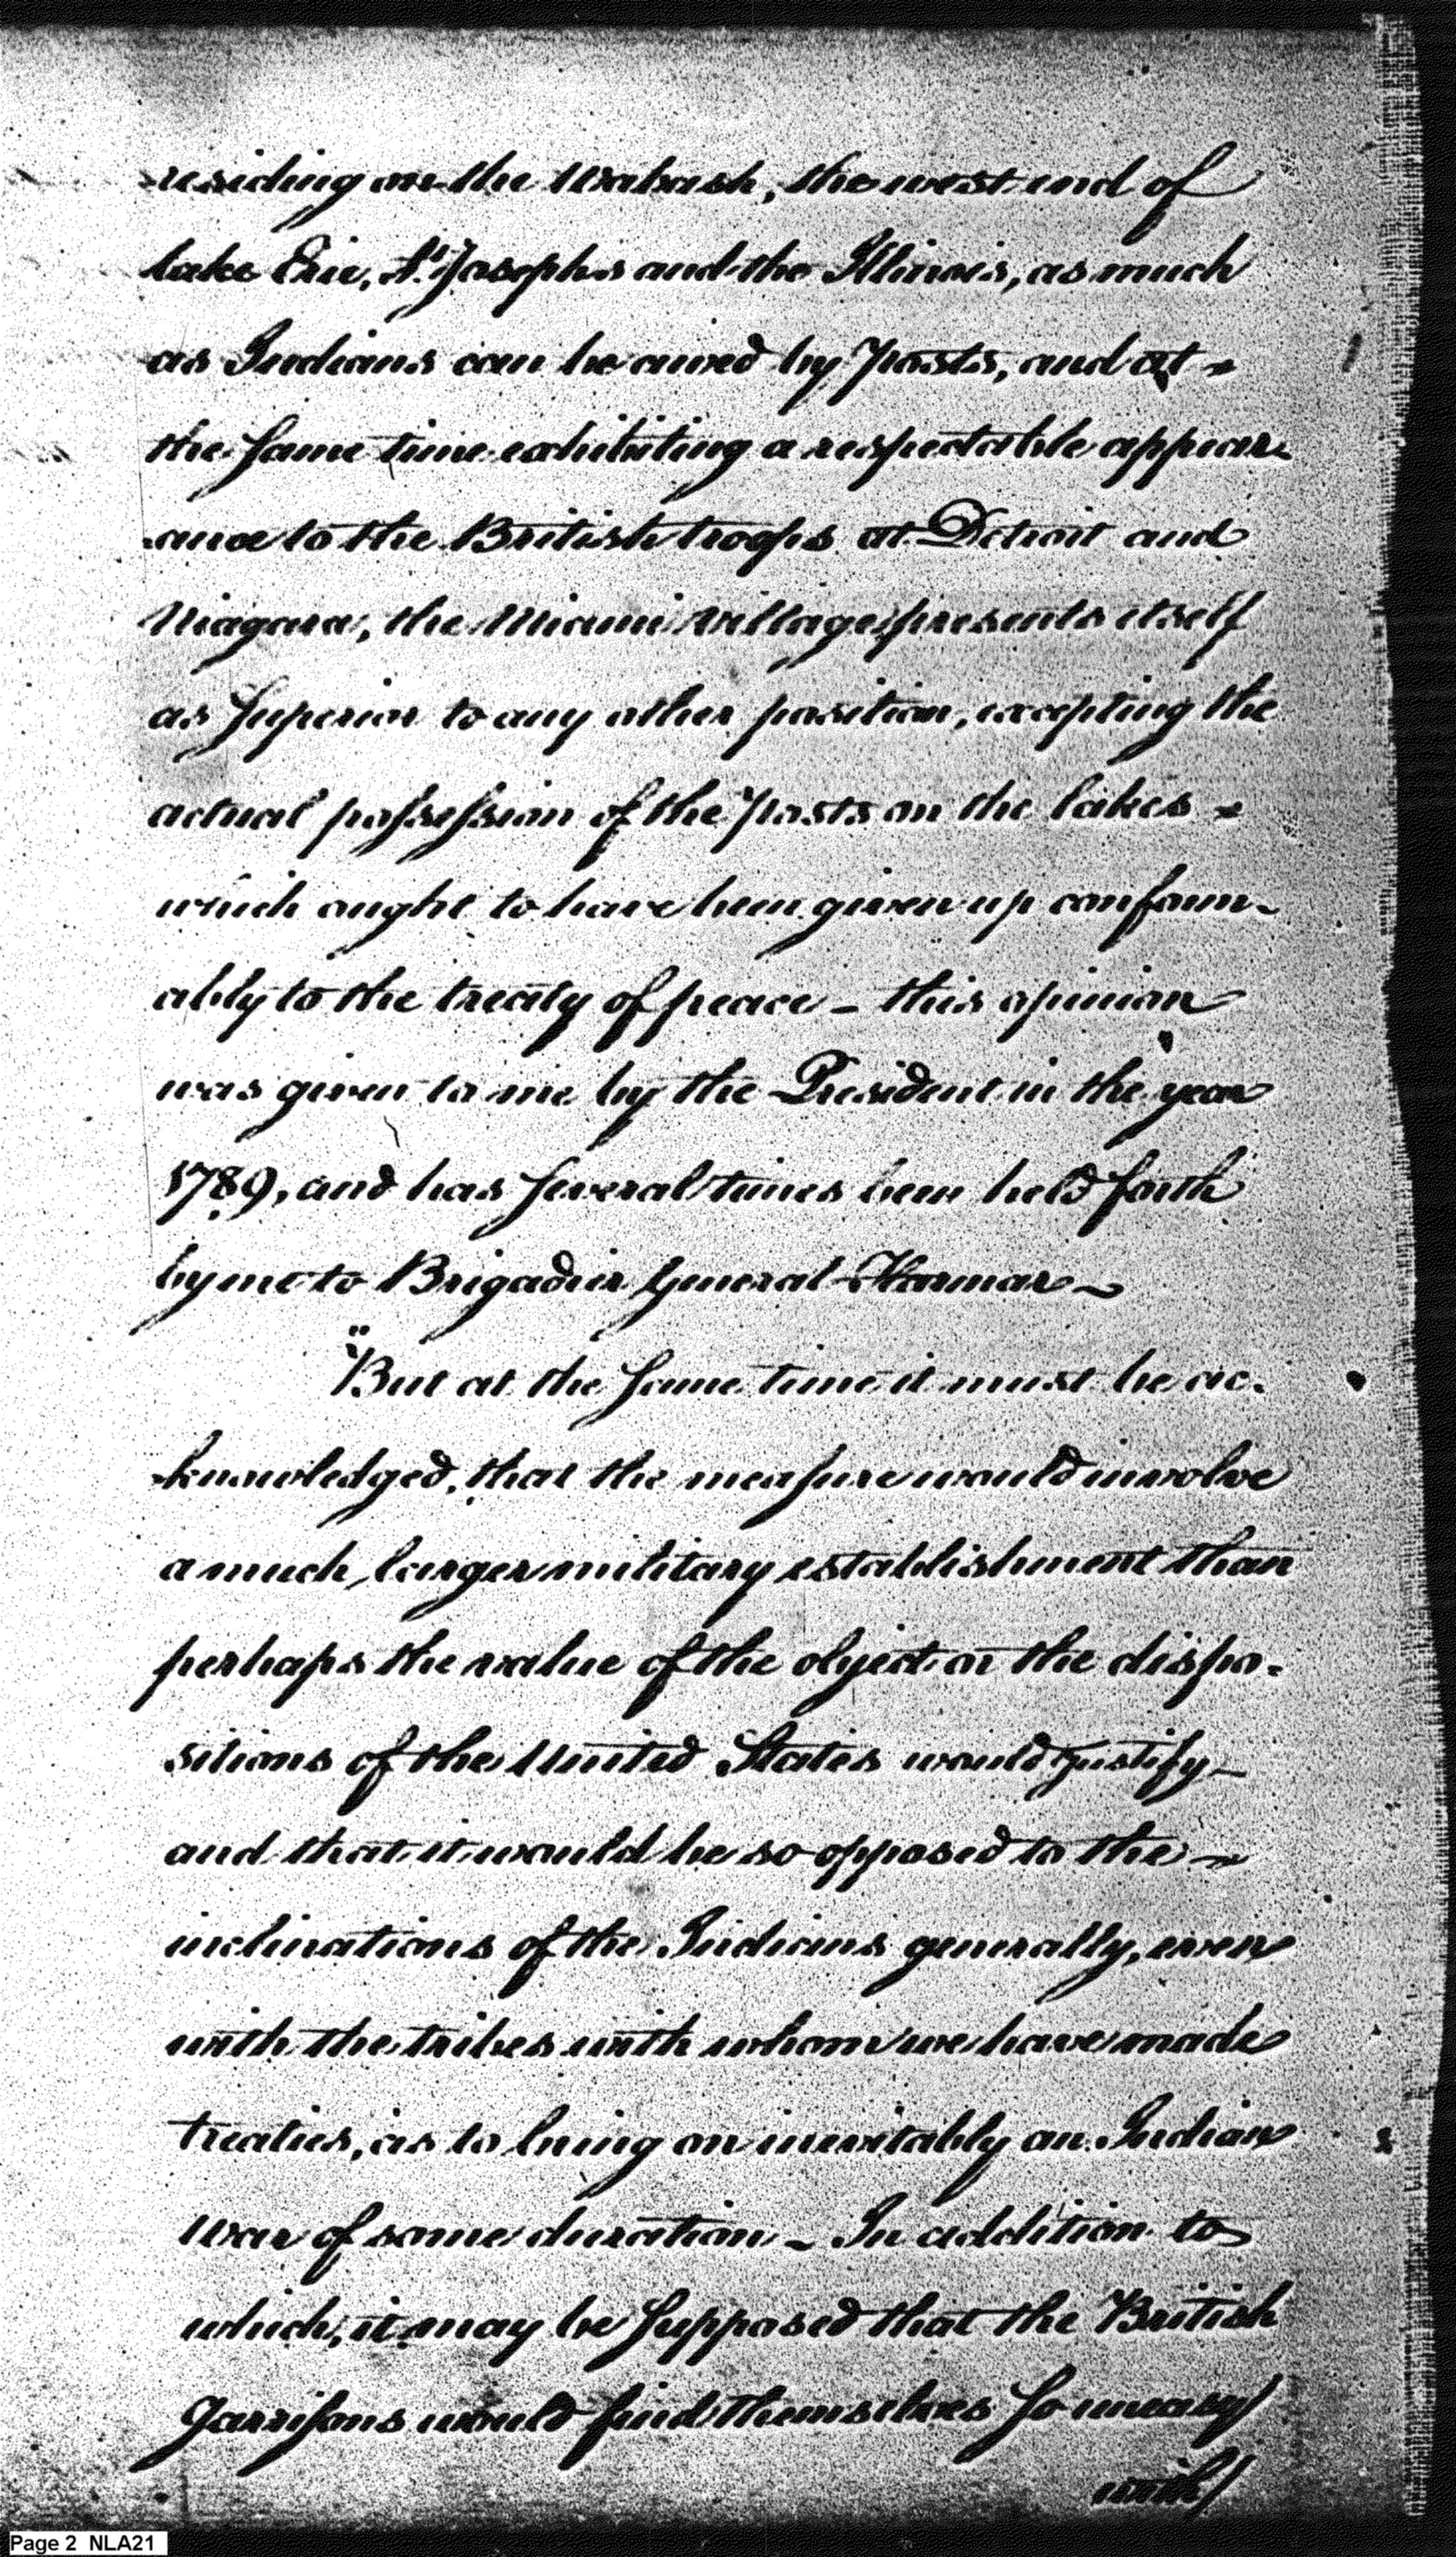 residing on the Wabash, the west end of
lake Erie, St. Josephs and the Illinois, as much
as Indians can be awed by Posts, and at
the same time exhibiting a respectable appear-
ance to the British troops at Detroit and
Niagara, the Miami Village presents itself
as superior to any other position, excepting the
actual possession of the posts on the lakes
which ought to have been given up conform-
ably to the treaty of peace – this opinion
was given to me by the President in the year
1789, and has several times been held forth
by me to Brigadier General Harmar –
"But at the same time it must be ac-
-knowledged, that the measure would involve
a much larger military establishment than
perhaps the value of the object or the dispo-
sitions of the United States would justify –
and that it would be so opposed to the
inclinations of the Indians generally, even
with the tribes with whom we have made
treaties, as to bring on inevitably an Indian
War of some duration – In addition to
which, it may be supposed that the British
Garrisons would find themselves so uneasy
with
Page 2 NLA21